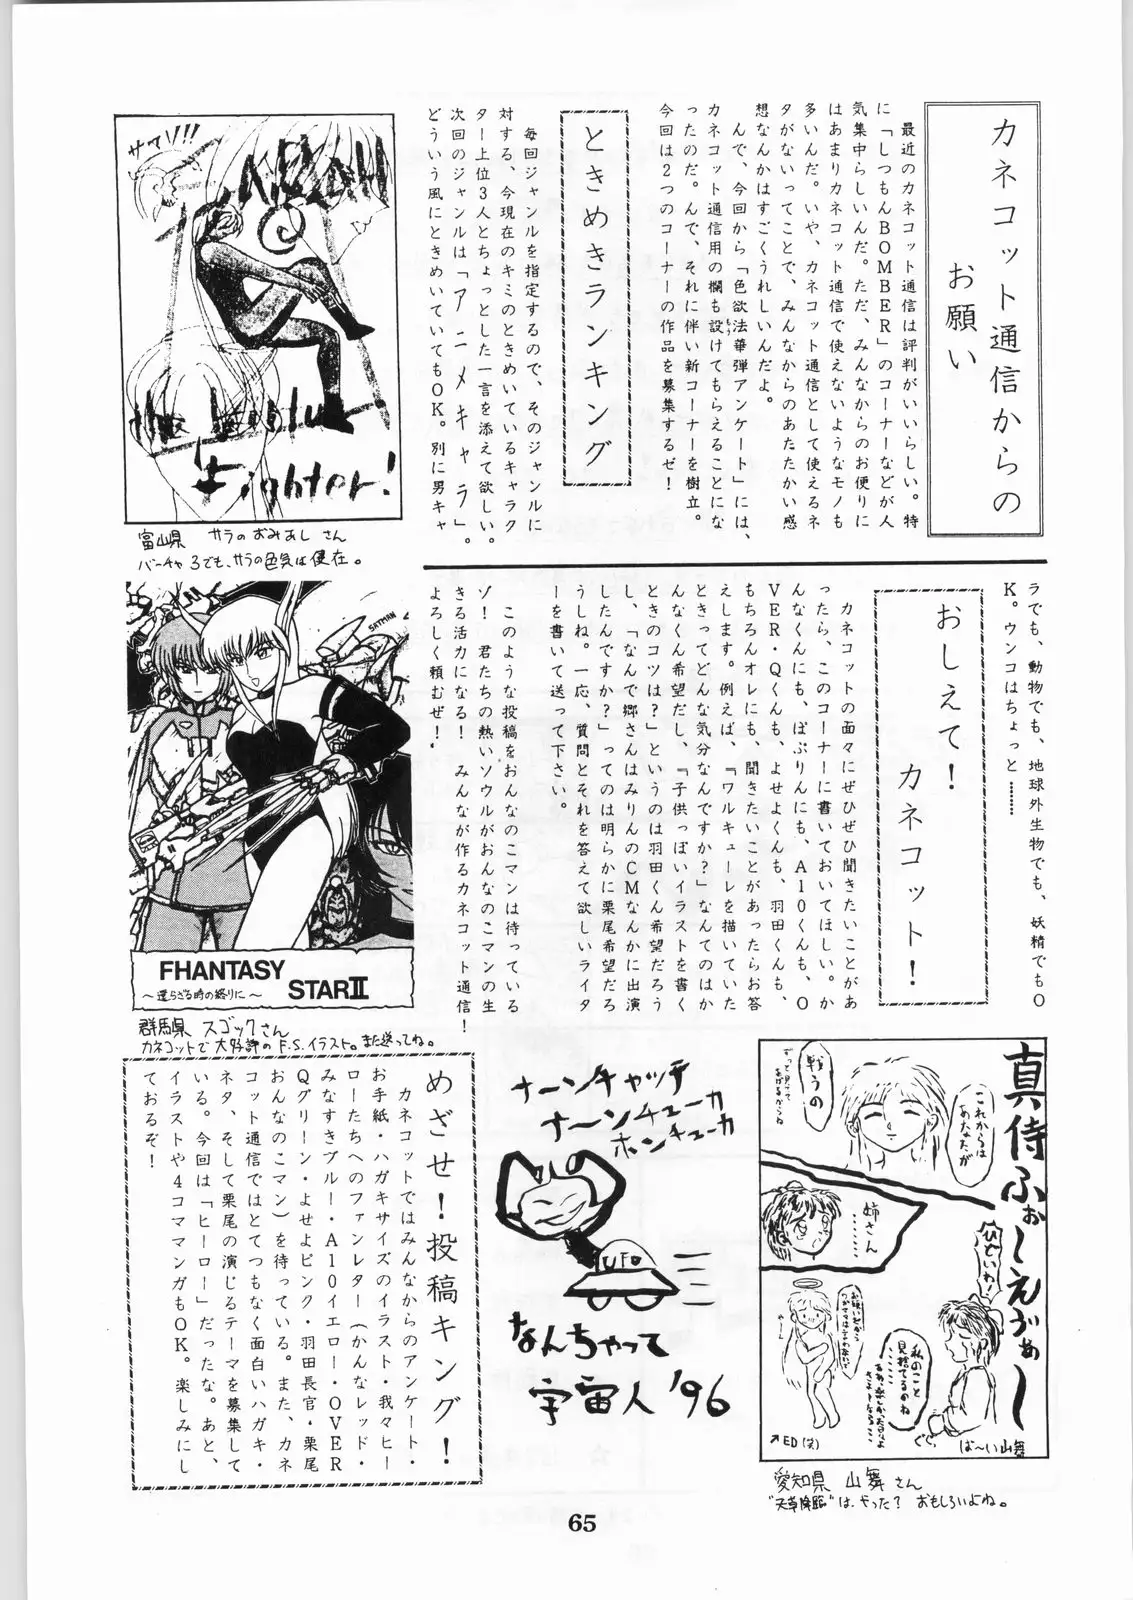 カネコット通信からの
お願い
最近のカネコット通信は評判がいいらしい。特
に「しつもんBOMBER」のコーナーなどが人
気集中らしいんだ。ただ、みんなからのお便りに
はあまりカネコット通信で使えないようなモノも
多いんだ。いや、カネコット通信として使えるネ
タがないってことで、みんなからのあたたかい感
想なんかはすごくうれしいんだよ。
んで、今回から「色欲法華弾アンケート」には、
カネコット通信用の欄も設けてもらえることにな
ったのだ。んで、それに伴い新コーナーを樹立。
今回は2つのコーナーの作品を募集するゼ!
ときめきランキング
毎回ジャンルを指定するので、そのジャンルに
対する、今現在のキミのときめいているキャラク
ター上位3人とちょっとした一言を添えて欲しい。
次回のジャンルは「アニメキャラ」。
どういう風にときめいていてもOK。別に男キャ
ラでも、動物でも、地球外生物でも、妖精でもO
K。ウンコはちょっと………
おしえて!
カネコット!
カネコットの面々にぜひぜひ聞きたいことがあ
ったら、このコーナーに書いておいてほしい。か
んなくんにも、ぽぷりんにも、A10くんも、O
VER・Qくんも、よせよくんも、羽田くんも、
もちろんオレにも、聞きたいことがあったらお答
えします。例えば、『ワルキューレを描いていた
ときってどんな気分なんですか?』なんてのはか
んなくん希望だし、『子供っぽいイラストを書く
ときのコツは?』というのは羽田くん希望だろう
し、「なんで郷さんはみりんのCMなんかに出演
したんですか?」ってのは明らかに栗尾希望だろ
うしね。一応、質問とそれを答えて欲しいライタ
ーを書いて送って下さい。
このような投稿をおんなのこマンは待っている
ゾ!君たちの熱いソウルがおんなのこマンの生
きる活力になる!みんなが作るカネコット通信!
よろしく頼むぜ!
サマソ!!
Fighter!
富山県 サラのおみあし さん
バーチャ3でも、サラの色気は健在。
SATMAN
FHANTASY
STARⅡ
〜還らざる時の終りに〜
群馬県 スゴックさん
カネコットで大好評のF.S.イラスト。また送ってね。
めざせ!投稿キング!
カネコットではみんなからのアンケート・
お手紙・ハガキサイズのイラスト・我々ヒー
ローたちへのファンレター(かんなレッド・
みなすきブルー・A10イエロー・OVER
Qグリーン・よせよピンク・羽田長官・栗尾
おんなのこマン)を待っている。また、カネ
コット通信ではとてつもなく面白いハガキ・
ネタ、そして栗尾の演じるテーマを募集して
いる。今回は「ヒーロー」だったな。あと、
イラストや4コママンガもOK。楽しみにし
ておるぞ!
ナーンチャッテ
ナーンチューカ
ホンチューカ
UFO
なんちゃって
宇宙人'96
真侍ふぉーえヴぁー
これからは
あなたが
戦うの
ずっと見てて
あげるからね
姉さん
………
ひどいわ!
私のこと
見捨てるのね
↗ED(笑)
ば〜い山舞
愛知県 山舞さん
"天草降臨"は、やった? おもしろいよね。
65